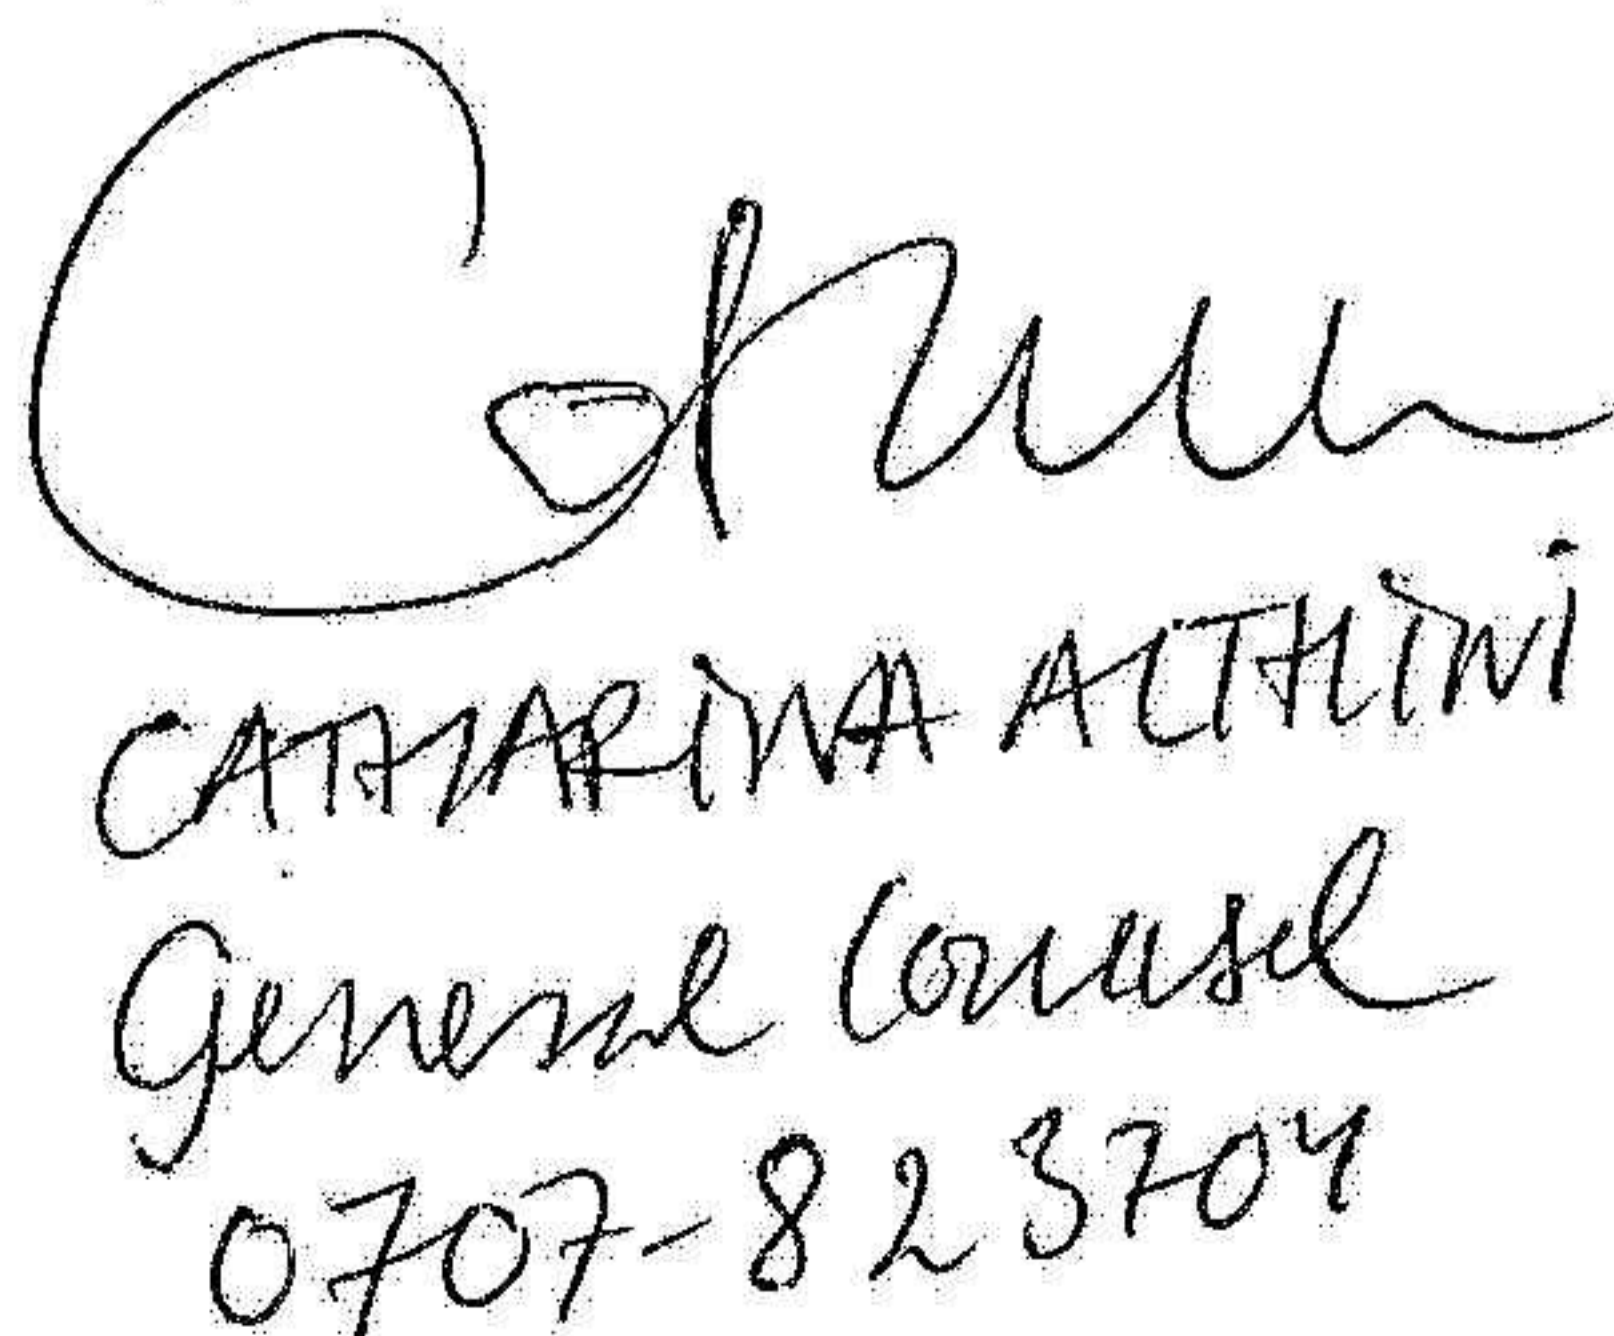 CATHARiNA ALTHiNi
General Counsel
0707-823704